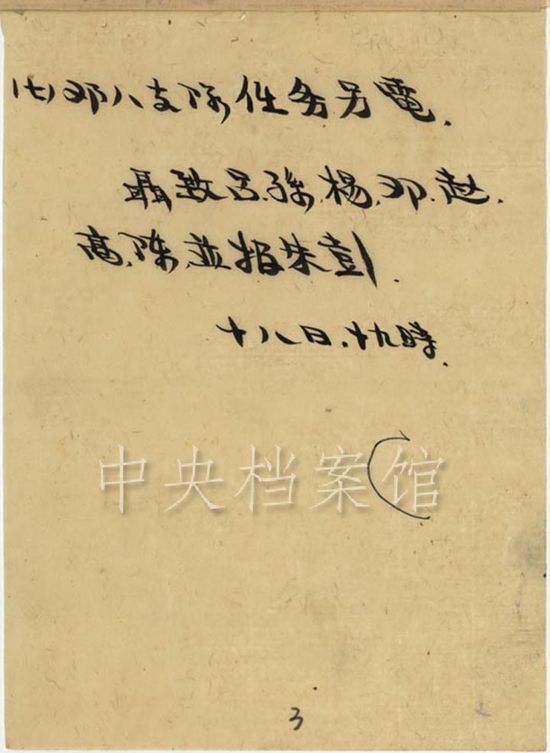 (七)邓八支隊任务另電.
聶致吕.孫.楊.邓.赵.
高.陈.並报朱彭.
十八日.十九時.
中央档案馆
3